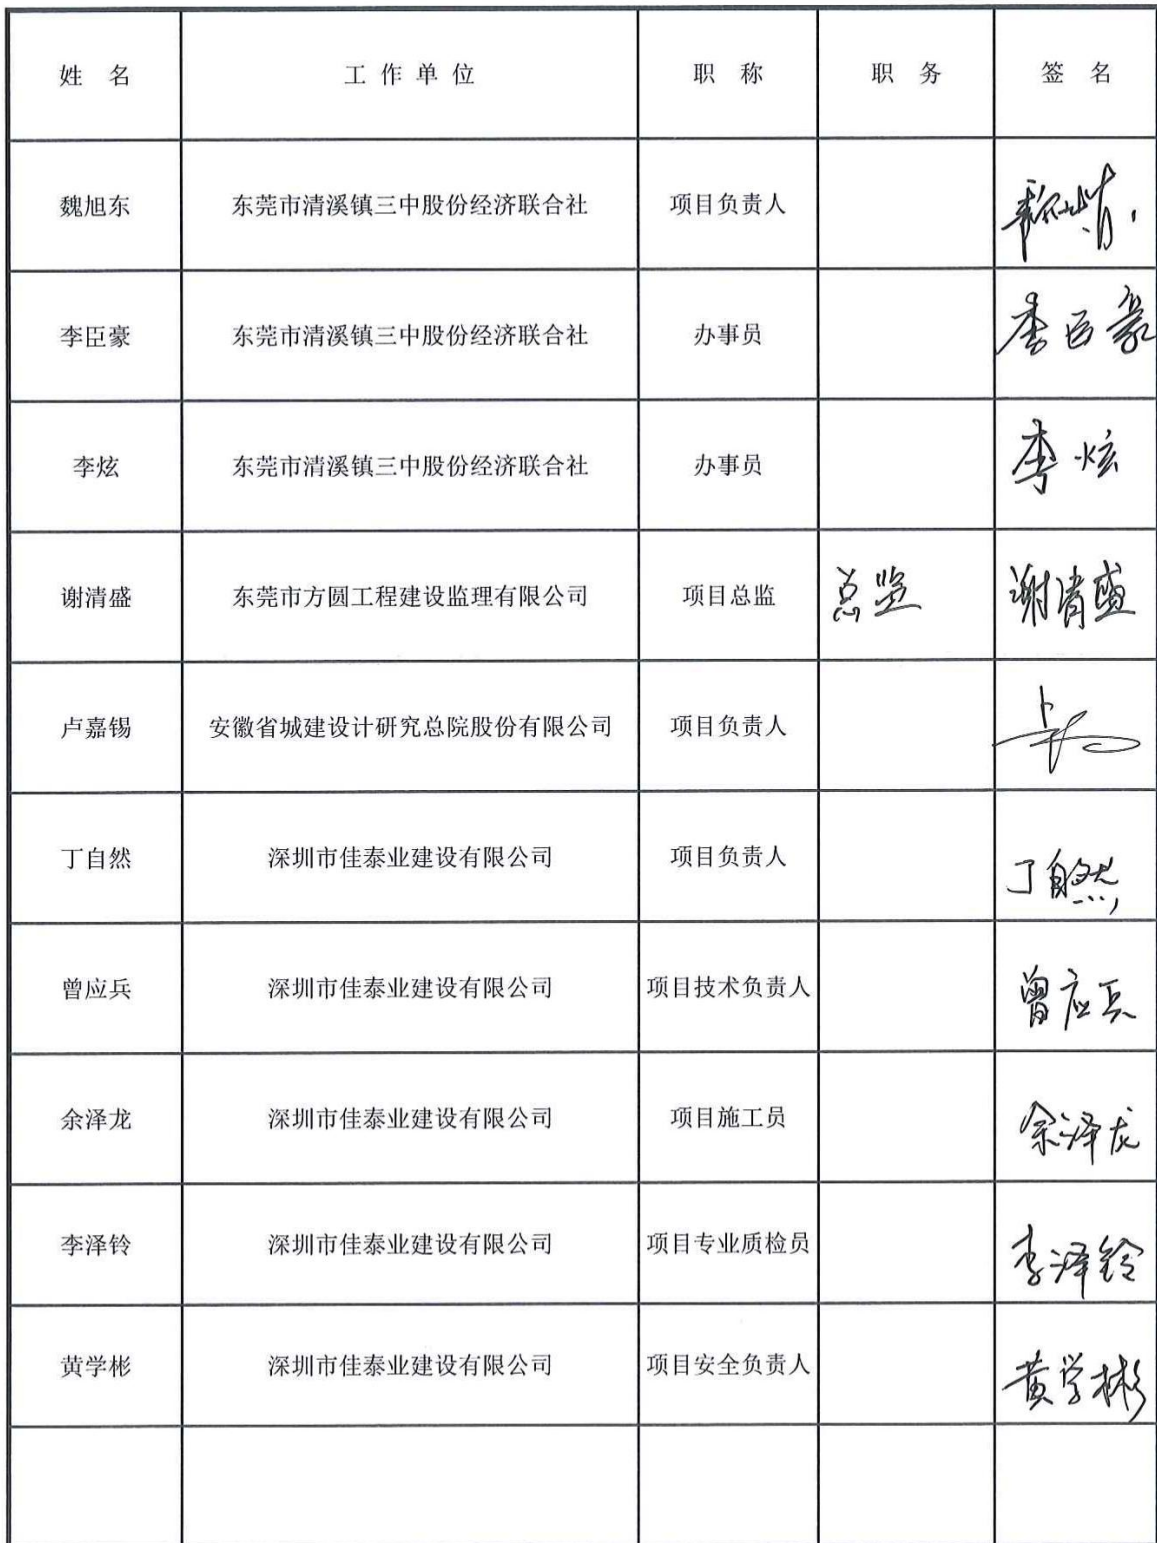 姓 名 工 作 单 位 职 称 职 务 签 名
魏旭东 东莞市清溪镇三中股份经济联合社 项目负责人
李臣豪 东莞市清溪镇三中股份经济联合社 办事员 李臣豪
李炫 东莞市清溪镇三中股份经济联合社 办事员 李炫
谢清盛 东莞市方圆工程建设监理有限公司 项目总监 总监 谢清盛
卢嘉锡 安徽省城建设计研究总院股份有限公司 项目负责人
丁自然 深圳市佳泰业建设有限公司 项目负责人 丁自然
曾应兵 深圳市佳泰业建设有限公司 项目技术负责人 曾应兵
余泽龙 深圳市佳泰业建设有限公司 项目施工员 余泽龙
李泽铃 深圳市佳泰业建设有限公司 项目专业质检员 李泽铃
黄学彬 深圳市佳泰业建设有限公司 项目安全负责人 黄学彬